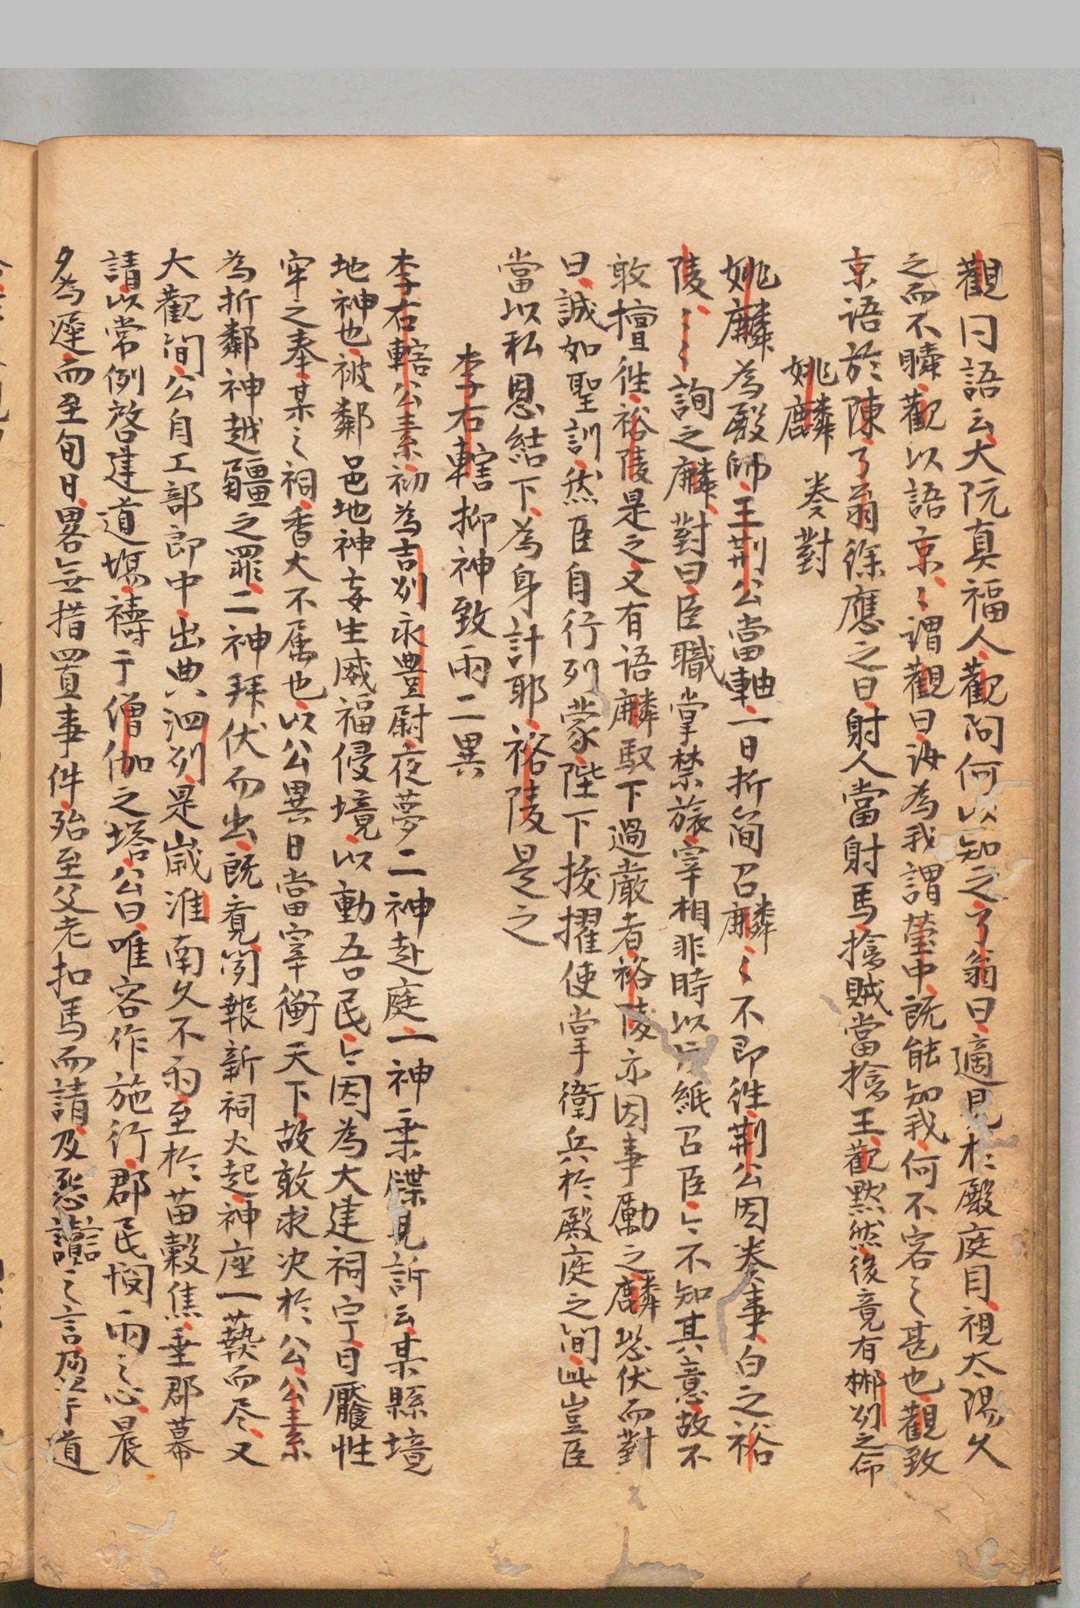 觀同語云大阮真福人觀問何以知之了翁曰適見於殿庭目視太陽久
之而不瞬觀以語京〻謂觀曰汝為我謂瑩中既能知我何不容之甚也觀致
京語於陳了翁徐應之曰射人當射馬擒賊當擒王觀黙然後竟有郴州之命
姚麟奏對
姚麟為殿帥王荆公當軸一日折簡召麟〻不即徃荆公因奏事白之裕
陵〻〻詢之麟對曰臣職掌禁旅宰相非時以片紙召臣〻不知其意故不
敢擅徃裕陵是之又有语麟馭下過嚴者裕陵亦因事勵之麟恐伏而對
曰誠如聖訓然臣自行列蒙陛下拔擢使掌衛兵於殿庭之間此豈臣
當以私恩結下為身計耶裕陵是之
李右轄抑神致雨二異
李右轄公素初為吉州永豊尉夜夢二神赴庭一神秉牒見訴云某縣境
地神也被鄰邑地神妄生威福侵境以動吾民〻因為大建祠宇日饜牲
牢之奉某之祠香火不属也以公異日當宰衡天下故敢求决於公公素
為折鄰神越疆之罪二神拜伏而出既覔閱報新祠火起神座一爇而尽又
大觀间公自工部郎中出典泗州是嵗淮南久不雨至於苗穀焦垂郡幕
請以常例啓建道塲禱于僧伽之塔公曰唯容作施行郡民憫雨之心晨
夕為遲而至旬日畧無措置事件殆至父老扣馬而請及怨讟之言盈于道